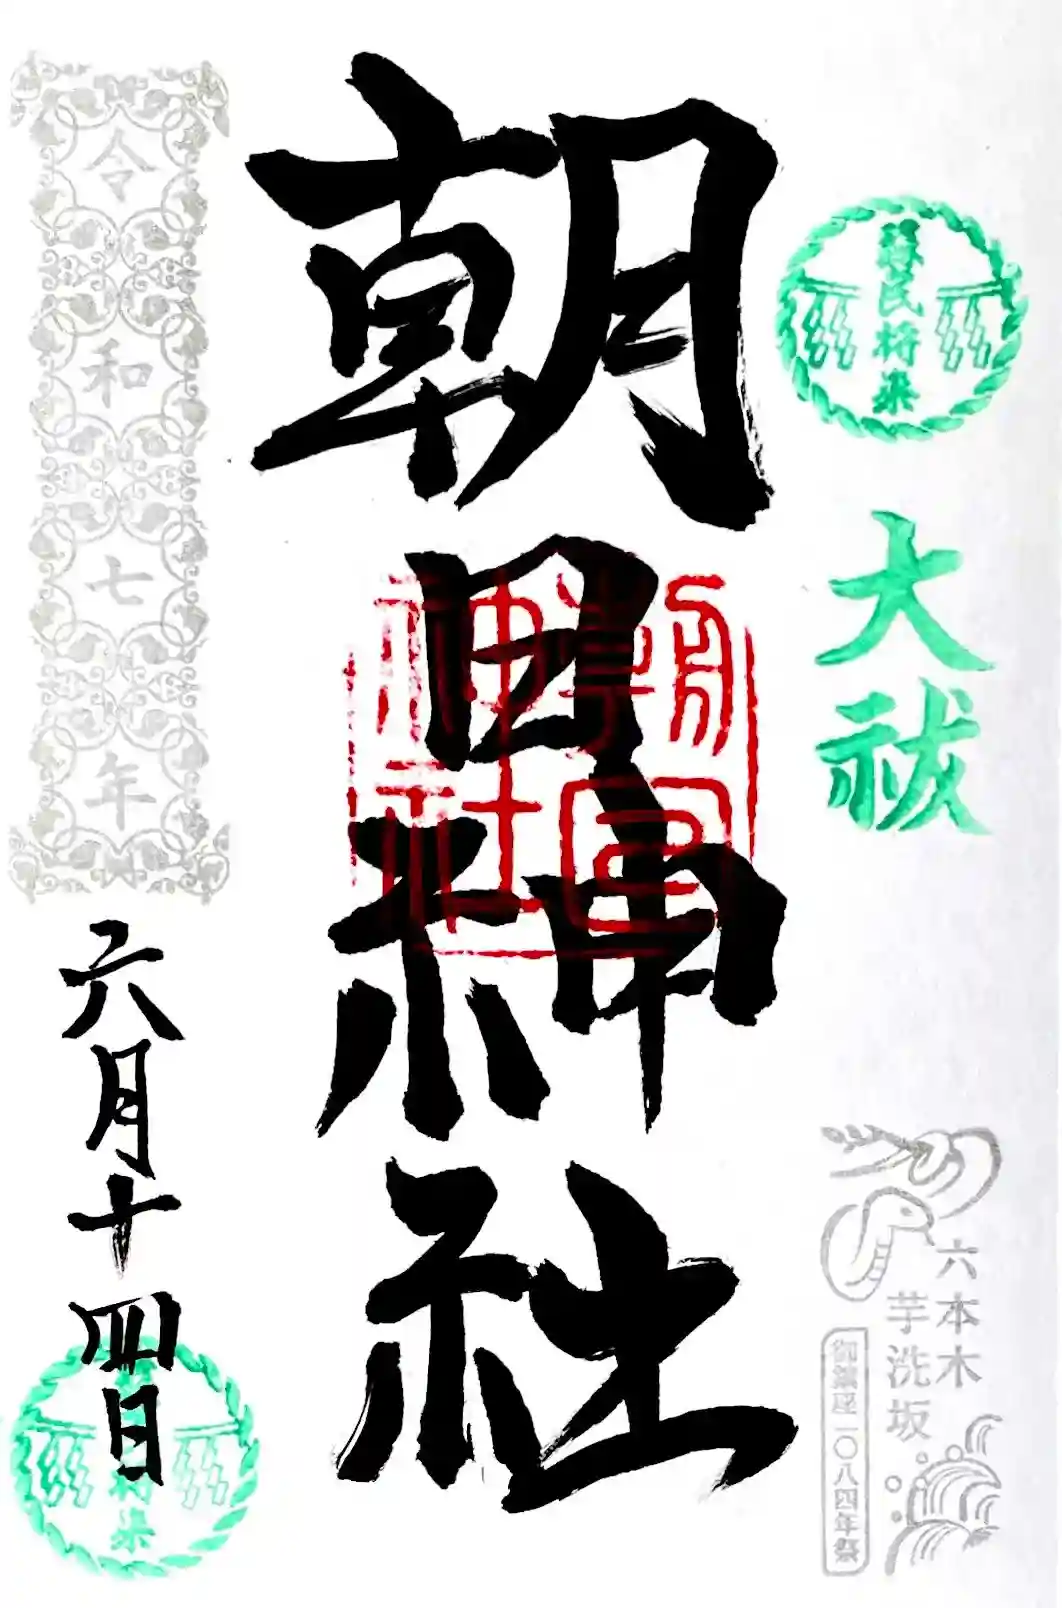 蘇民将来
大祓
六本木
芋洗坂
御鎮座一〇八四年祭
朝日神社
令和七年
六月十四日
将来